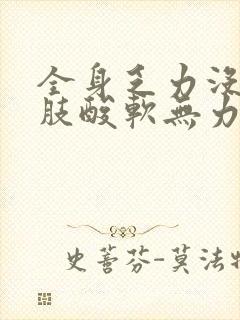 全身乏力沒
肢酸軟無力
史蒈芬-莫法特